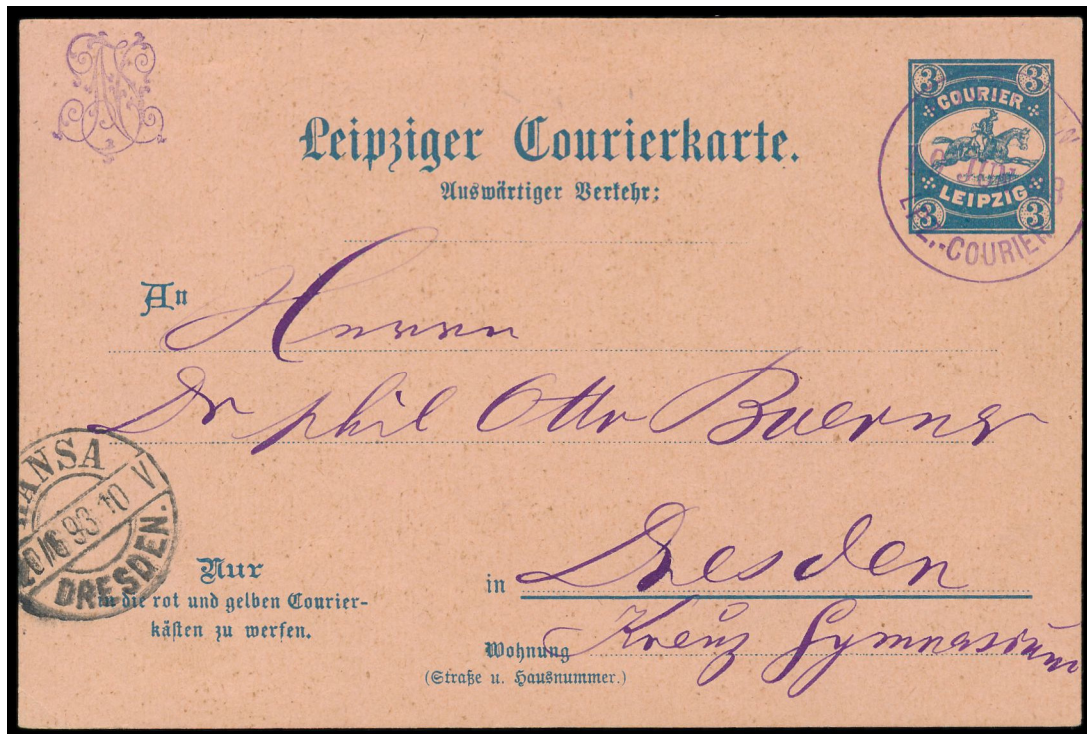 Leipziger Courierkarte.
Auswärtiger Verkehr:
3 3
COURIER
LEIPZIG
3 3
LPZ.-COURIER
An Herrn
Dr phil Otto Boerner
HANSA
93 10 V
DRESDEN.
Nur
in die rot und gelben Courier-
kästen zu werfen.
in Dresden
Wohnung Kreuz Gymnasium
(Straße u. Hausnummer.)